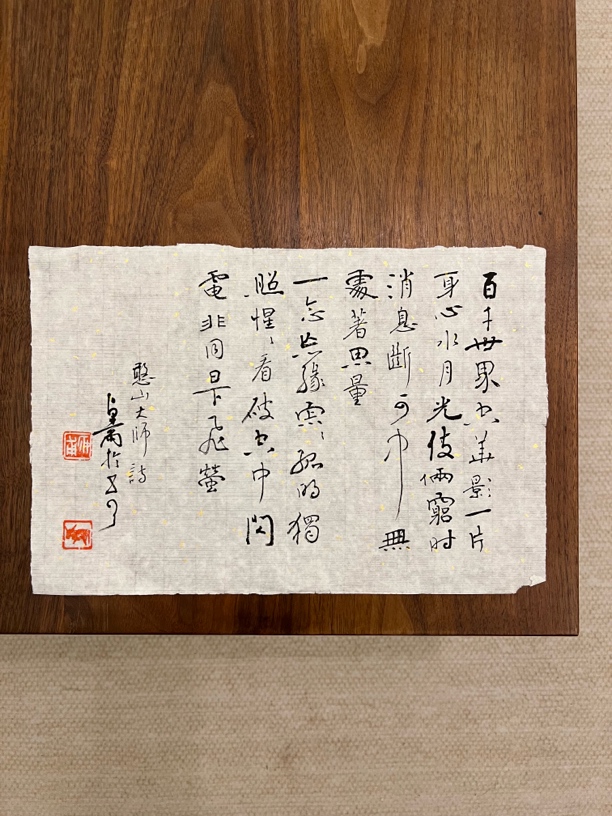 百千世界空華影一片
身心水月光伎倆窮时
消息斷可中無
處著思量
一念忘緣寂々孤明獨
照惺々看破空中閃
電非同日下飛螢
憨山大師詩